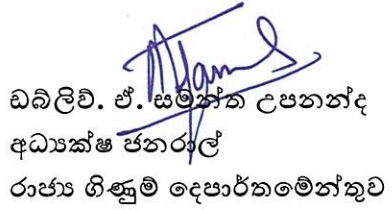 ඩබ්ලිව්. ඒ. සමන්ත උපනන්ද
අධ්‍යක්ෂ ජනරාල්
රාජ්‍ය ගිණුම් දෙපාර්තමේන්තුව